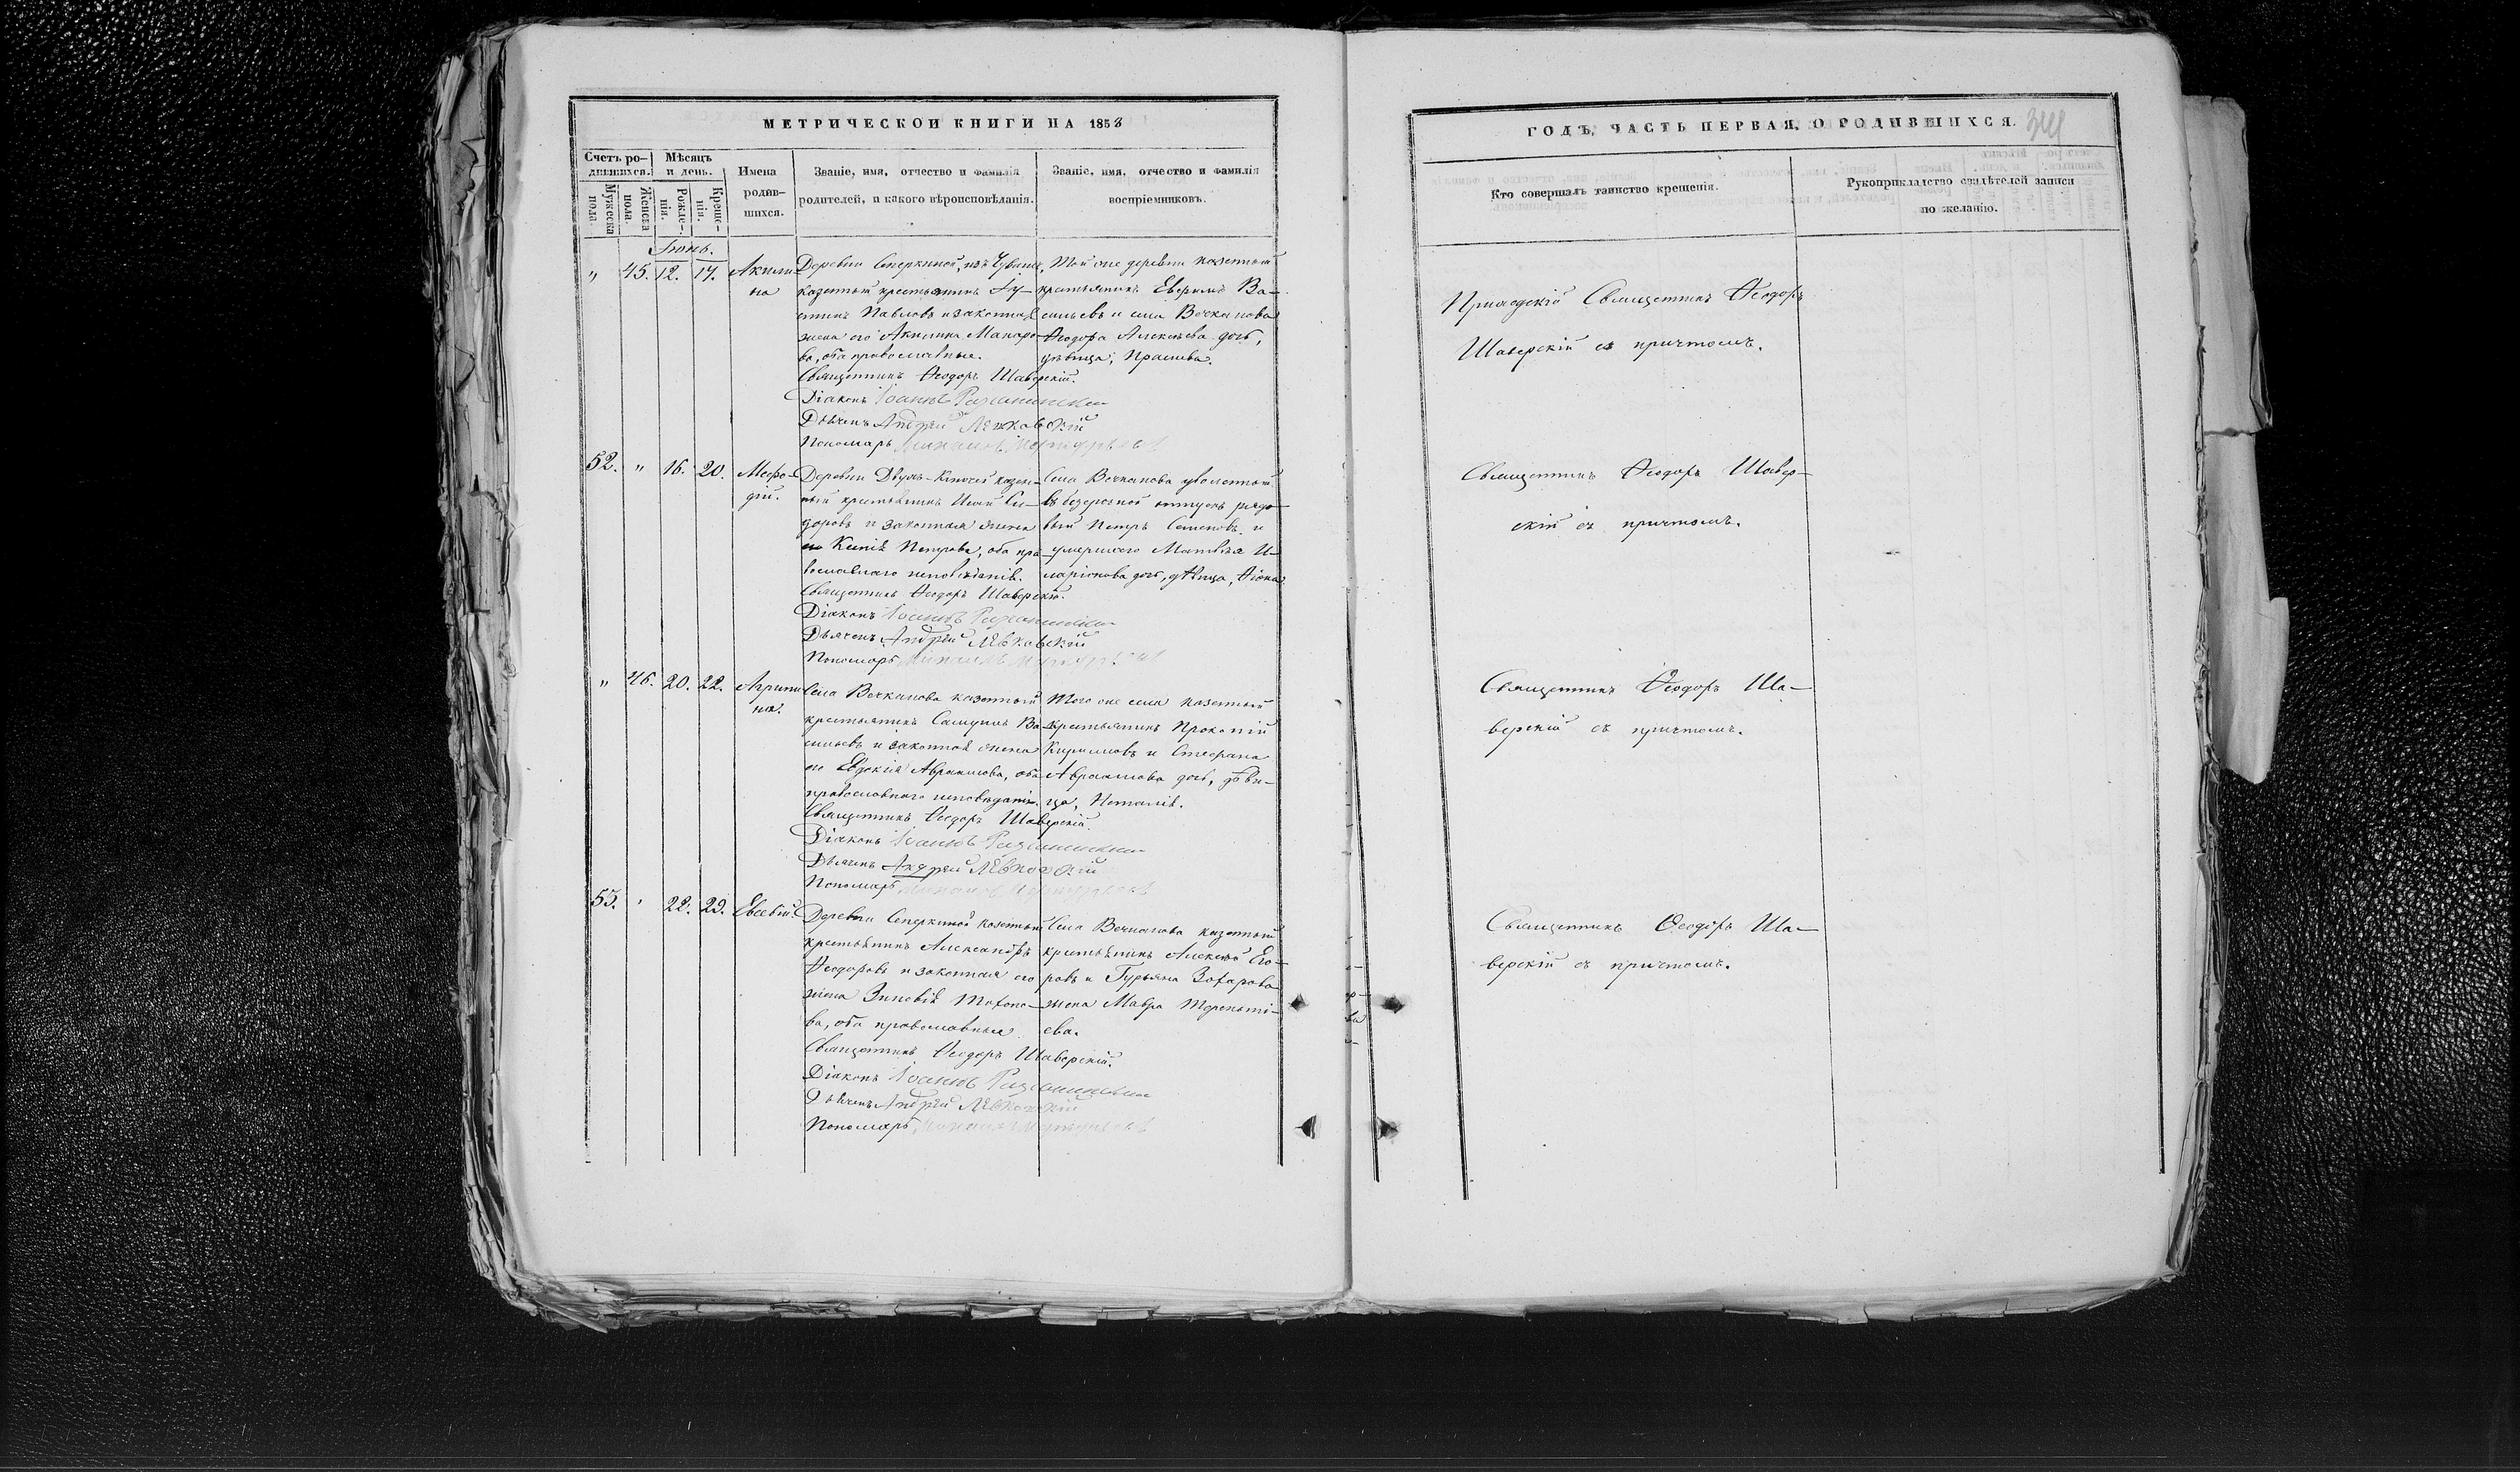 МЕТРИЧЕСКОИ КНИГИ НА 1858
Счетъ ро-
дившихся.
Мѣсяцъ
и день.
Мужеска
пола.
Женска
пола.
Рожде-
нія.
Креще-
нія.
Имена
родив-
шихся.
Званіе, имя, отчество и фамилія
родителей, и какого вѣроисповѣданія.
Званіе, имя, отчество и фамилія
воспріемниковъ.
Іюнь.
" 45. 12. 17.
Акили-
на
Деревни Сперкиной, изъ Чувашъ,
казенный крестьянинъ
Павловъ и законная
жена его Акилина Макаро-
ва, оба православные.
Священникъ Ѳеодоръ Шаверскій.
Діаконъ Іоаннъ
Дьячекъ Андрей Лѣвковскій
Пономарь
Той же деревни казенный
крестьянинъ Ва-
сильевъ и села Вечканова
Ѳеодора Алексѣева дочь,
дѣвица,
52. " 16. 20.
Меѳо-
дій.
Деревни Двухъ-Ключей казен-
ный крестьянинъ Исай Си-
доровъ и законная жена
его Ксенія Петрова, оба пра-
вославнаго исповѣданія.
Священникъ Ѳеодоръ Шаверскій.
Діаконъ Іоаннъ
Дьячекъ Андрей Лѣвковскій
Пономарь
Села Вечканова уволенный
въ безсрочной отпускъ рядо-
вый Петръ Семеновъ и
умершаго Матвѣя И-
ларіонова дочь, дѣвица,
" 46. 20. 22.
Агрипи-
на.
Села Вечканова казенный
крестьянинъ Самуилъ Ва-
сильевъ и законная жена
его Евдокія Авраамова, оба
православнаго исповѣданія.
Священникъ Ѳеодоръ Шаверскій.
Діаконъ Іоаннъ
Дьячекъ Андрей Лѣвковскій
Пономарь
Того же села казенный
крестьянинъ Прокопій
Кириловъ и Стефана
Авраамова дочь, дѣви-
ца, Наталія.
53. " 22. 29.
Евсевій.
Деревни Сперкиной казенный
крестьянинъ Александръ
Ѳеодоровъ и законная его
жена Зиновія
ва, оба православные.
Священникъ Ѳеодоръ Шаверскій.
Діаконъ Іоаннъ
Дьячекъ Андрей Лѣвковскій
Пономарь
Села Вечканова казенный
крестьянинъ Алексѣй Его-
ровъ и Гурьяна Захарова
жена Мавра Терентьі-
ева.
ГОДЪ, ЧАСТЬ ПЕРВАЯ, О РОДИВШИХСЯ.
Кто совершалъ таинство крещенія.
Рукоприкладство свидѣтелей записи
по желанію.
Приходскій Священникъ Ѳеодоръ
Шаверскій съ причтомъ.
Священникъ Ѳеодоръ Шавер-
скій съ причтомъ.
Священникъ Ѳеодоръ Ша-
верскій съ причтомъ.
Священникъ Ѳеодоръ Ша-
верскій съ причтомъ.